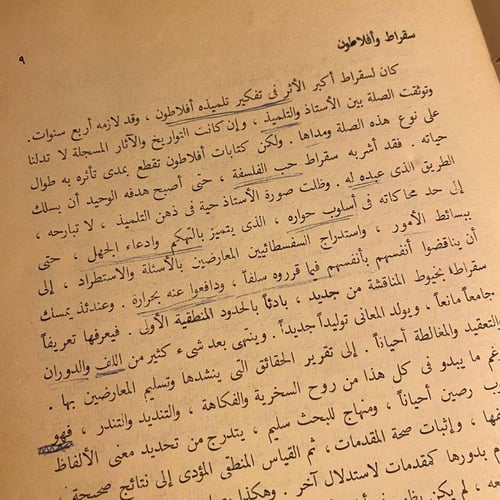 سقراط وأفلاطون
٩
كان لسقراط أكبر الأثر فى تفكير تلميذه أفلاطون ، وقد لازمه أربع سنوات.
وتوثقت الصلة بين الأستاذ والتلميذ ، وإن كانت التواريخ والآثار المسجلة لا تدلنا
على نوع هذه الصلة ومداها . ولكن كتابات أفلاطون تقطع بمدى تأثره به طوال
حياته . فقد أشربه سقراط حب الفلسفة ، حتى أصبح هدفه الوحيد أن يسلك
الطريق الذى عبده له . وظلت صورة الأستاذ حية فى ذهن التلميذ ، لا تبارحه ،
إلى حد محاكاته فى أسلوب حواره ، الذى يتميز بالتهكم وادعاء الجهل ، حتى
ببسائط الأمور ، واستدراج السفسطائيين المعارضين بالأسئلة والاستطراد ، إلى
أن يناقضوا أنفسهم بأنفسهم فيما قرروه سلفاً ، ودافعوا عنه بحرارة . وعندئذ يمسك
سقراط بخيوط المناقشة من جديد ، بادئاً بالحدود المنطقية الأولى . فيعرفها تعريفاً
جامعاً مانعاً ، ويولد المعانى توليداً جديداً . وينتهى بعد شىء كثير من اللف والدوران
والتعقيد والمغالطة أحياناً . إلى تقرير الحقائق التى ينشدها وتسليم المعارضين بها .
غم ما يبدو فى كل هذا من روح السخرية والفكاهة ، والتنديد والتندر ، فهو
ب رصين أحياناً ، ومنهاج للبحث سليم ، يتدرج من تحديد معنى الألفاظ
ها ، وإثبات صحة المقدمات ، ثم القياس المنطقى المؤدى إلى نتائج صحيحة
م بدورها كمقدمات لاستدلال آخر . وهكذا
ه ، لم يكن